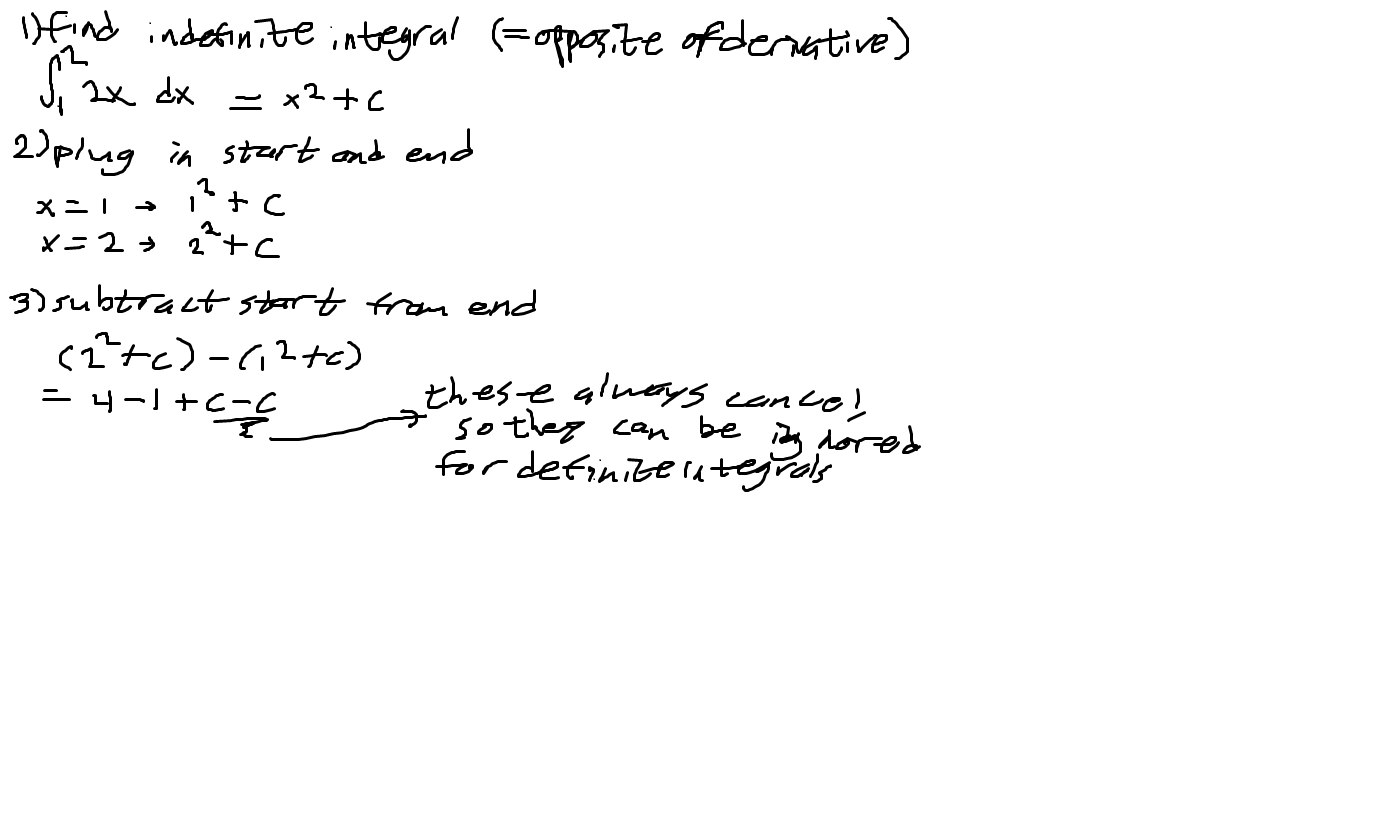 1) find indefinite integral (= opposite of derivative)
∫₁² 2x dx = x² + c
2) plug in start and end
x = 1 → 1² + C
x = 2 → 2² + C
3) subtract start from end
(2² + c) - (1² + c)
= 4 - 1 + c - c
these always cancel,
so they can be ignored
for definite integrals